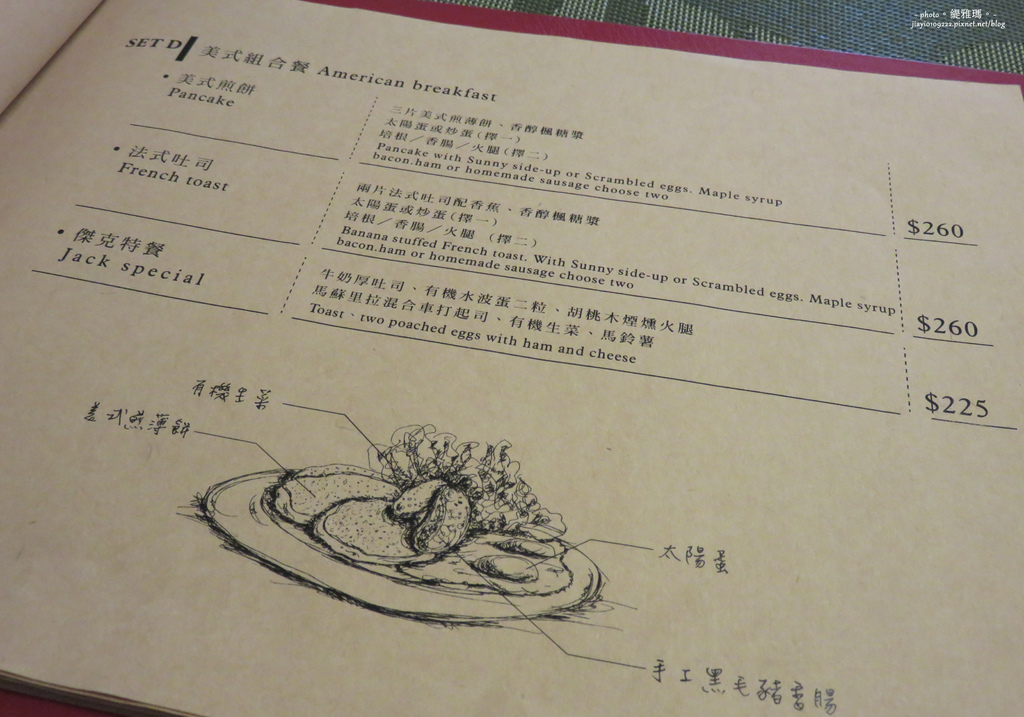 ~photo。緹雅瑪。~
jiayi0109222.pixnet.net/blog
SET D 美式組合餐 American breakfast
• 美式煎餅
Pancake
三片美式煎薄餅、香醇楓糖漿
太陽蛋或炒蛋(擇一)
培根／香腸／火腿(擇二)
Pancake with Sunny side-up or Scrambled eggs. Maple syrup
bacon.ham or homemade sausage choose two
$260
• 法式吐司
French toast
兩片法式吐司配香蕉、香醇楓糖漿
太陽蛋或炒蛋(擇一)
培根／香腸／火腿 (擇二)
Banana stuffed French toast. With Sunny side-up or Scrambled eggs. Maple syrup
bacon.ham or homemade sausage choose two
$260
• 傑克特餐
Jack special
牛奶厚吐司、有機水波蛋二粒、胡桃木煙燻火腿
馬蘇里拉混合車打起司、有機生菜、馬鈴薯
Toast、two poached eggs with ham and cheese
$225
有機生菜
美式煎薄餅
太陽蛋
手工黑毛豬香腸